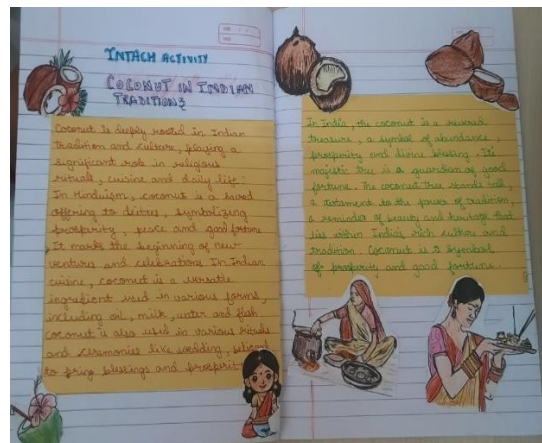 INTACH ACTIVITY
COCONUT IN INDIAN
TRADITIONS
Coconut is deeply rooted in Indian
tradition and culture, playing a
significant role in religious
rituals, cuisine and daily life.
In Hinduism, coconut is a sacred
offering to deities, symbolizing
prosperity, peace and good fortune
It marks the beginning of new
ventures and celebrations. In Indian
cuisine, coconut is a versatile
ingredient used in various forms,
including oil, milk, water and flesh
coconut is also used in various rituals
and ceremonies like wedding, believed
to bring blessings and prosperity
In India, the coconut is a revered
treasure, a symbol of abundance,
prosperity and divine blessing. Its
majestic tree is a guardian of good
fortune. The coconut tree stands tall,
a testament to the power of tradition,
a reminder of beauty and heritage that
lies within India's rich culture and
tradition. Coconut is a symbol
of prosperity and good fortune.